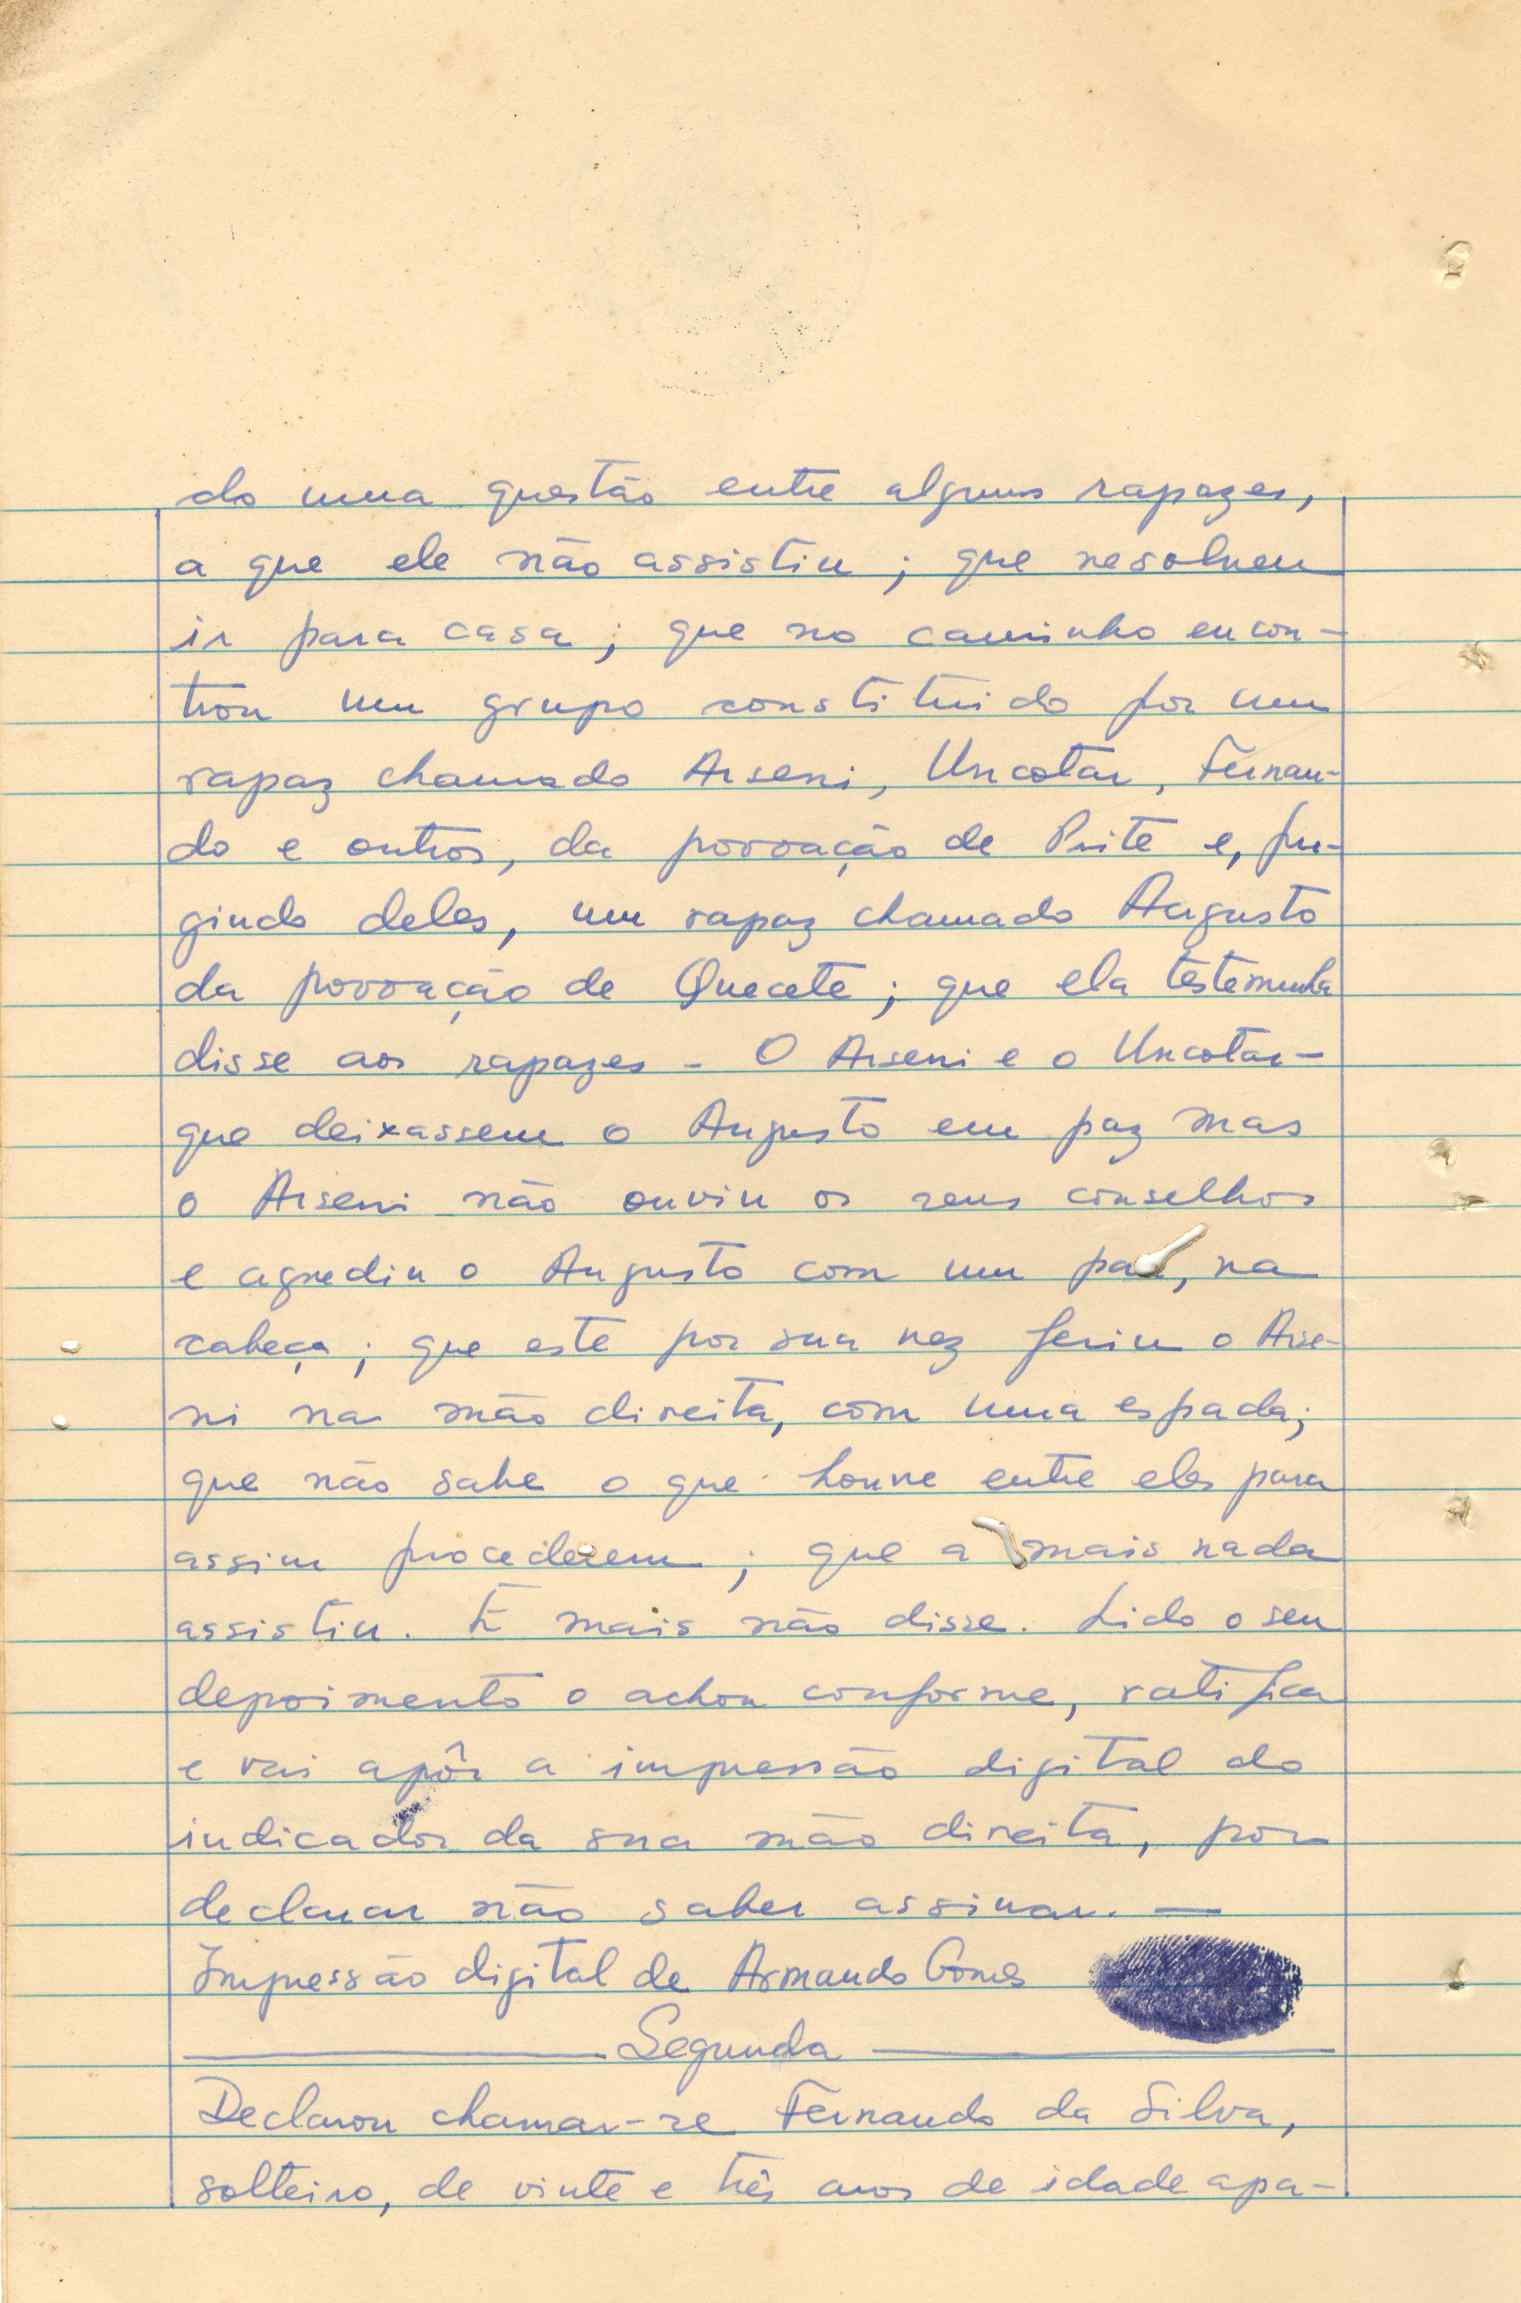 do uma questão entre alguns rapazes,
a que ele não assistiu; que resolveu
ir para casa; que no caminho encon-
trou um grupo constituido por um
rapaz chamado Arseni, Uncotar, Fernan-
do e outros, da povoação de e, fu-
gindo deles, um rapaz chamado Augusto
da povoação de Quecete; que ela testemunha
disse aos rapazes - O Arseni e o Uncotar-
que deixassem o Augusto em paz mas
o Arseni não ouviu os seus conselhos
e agrediu o Augusto com um pau, na
cabeça; que este por sua vez feriu o Arse-
ni na mão direita, com uma espada;
que não sabe o que houve entre eles para
assim procederem; que a mais nada
assistiu. E mais não disse. Lido o seu
depoimento o achou conforme, ratifica
e vai apôr a impressão digital do
indicador da sua mão direita, por
declarar não saber assinar. —
Impressão digital de Armando Gomes
Segunda
Declarou chamar-se Fernando da Silva,
solteiro, de vinte e três anos de idade apa-